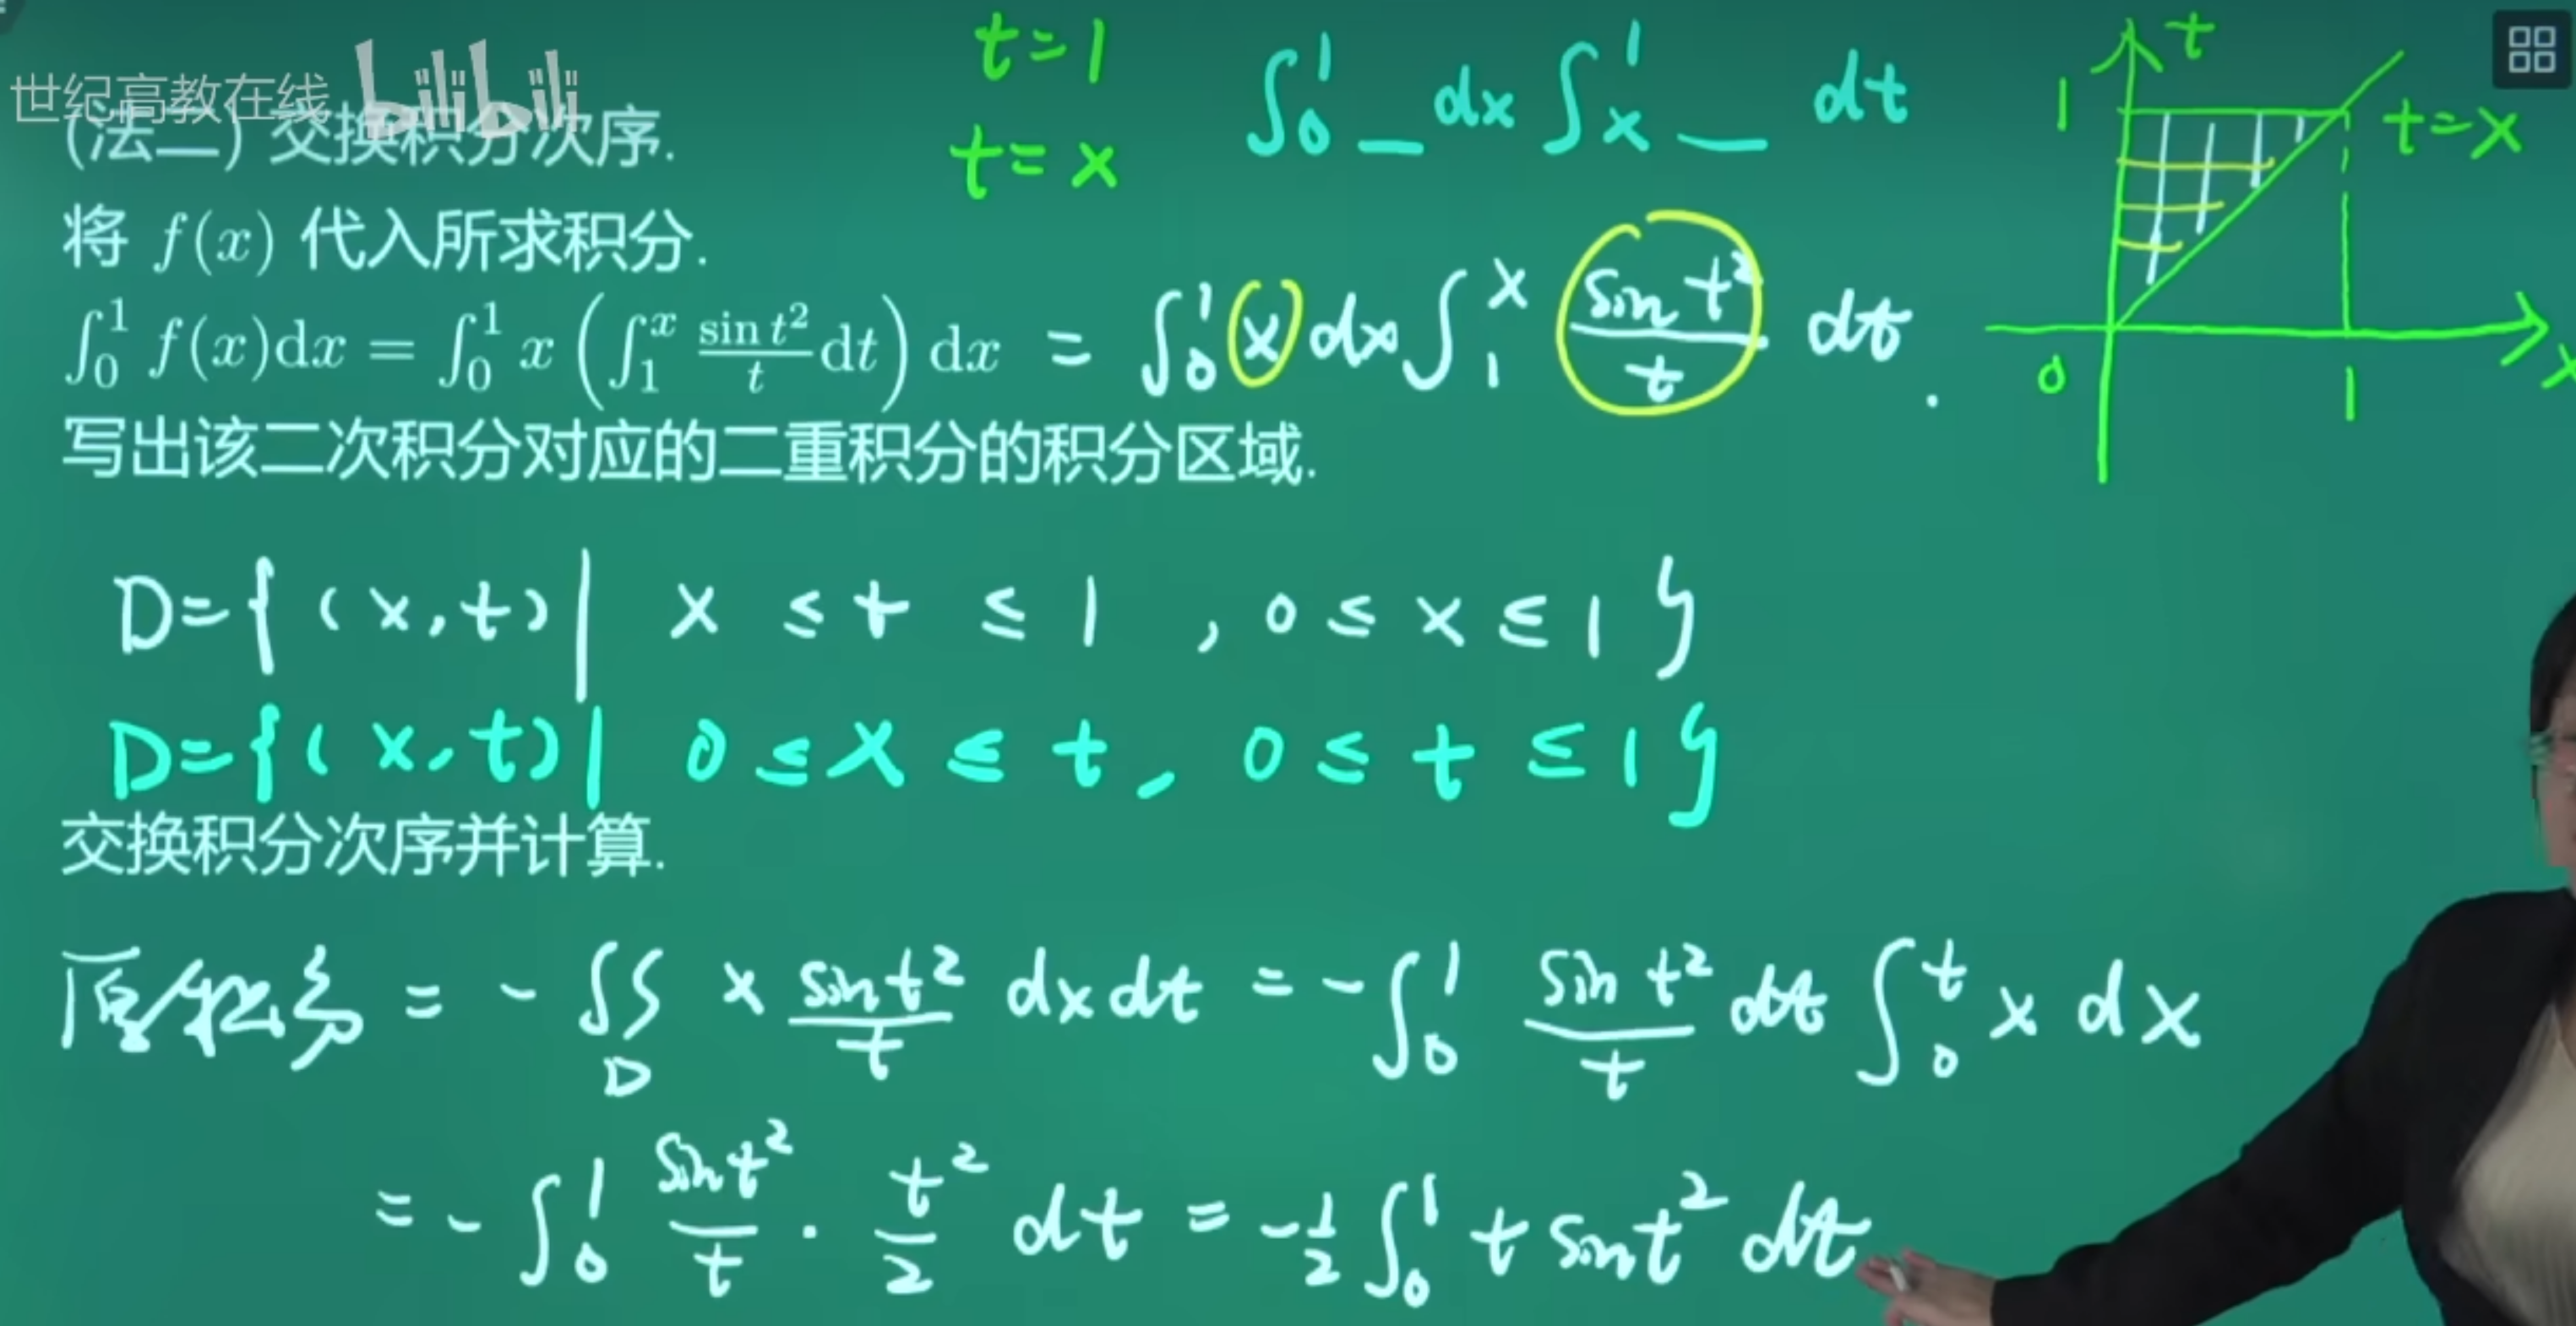 世纪高教在线 bilibili
(法二) 交换积分次序.
t=1
t=x
∫₀¹ _ dx ∫ₓ¹ _ dt
将 f(x) 代入所求积分.
∫₀¹ f(x)dx = ∫₀¹ x (∫₁ˣ sin t²/t dt) dx = ∫₀¹ x dx ∫₁ˣ sin t²/t dt.
t
1
t=x
0
1
x
写出该二次积分对应的二重积分的积分区域.
D={(x,t)| x ≤ t ≤ 1, 0 ≤ x ≤ 1}
D={(x,t)| 0 ≤ x ≤ t, 0 ≤ t ≤ 1}
交换积分次序并计算.
原积分 = - ∬_D x sin t²/t dx dt = - ∫₀¹ sin t²/t dt ∫₀ᵗ x dx
= - ∫₀¹ sin t²/t · t²/2 dt = -1/2 ∫₀¹ t sin t² dt